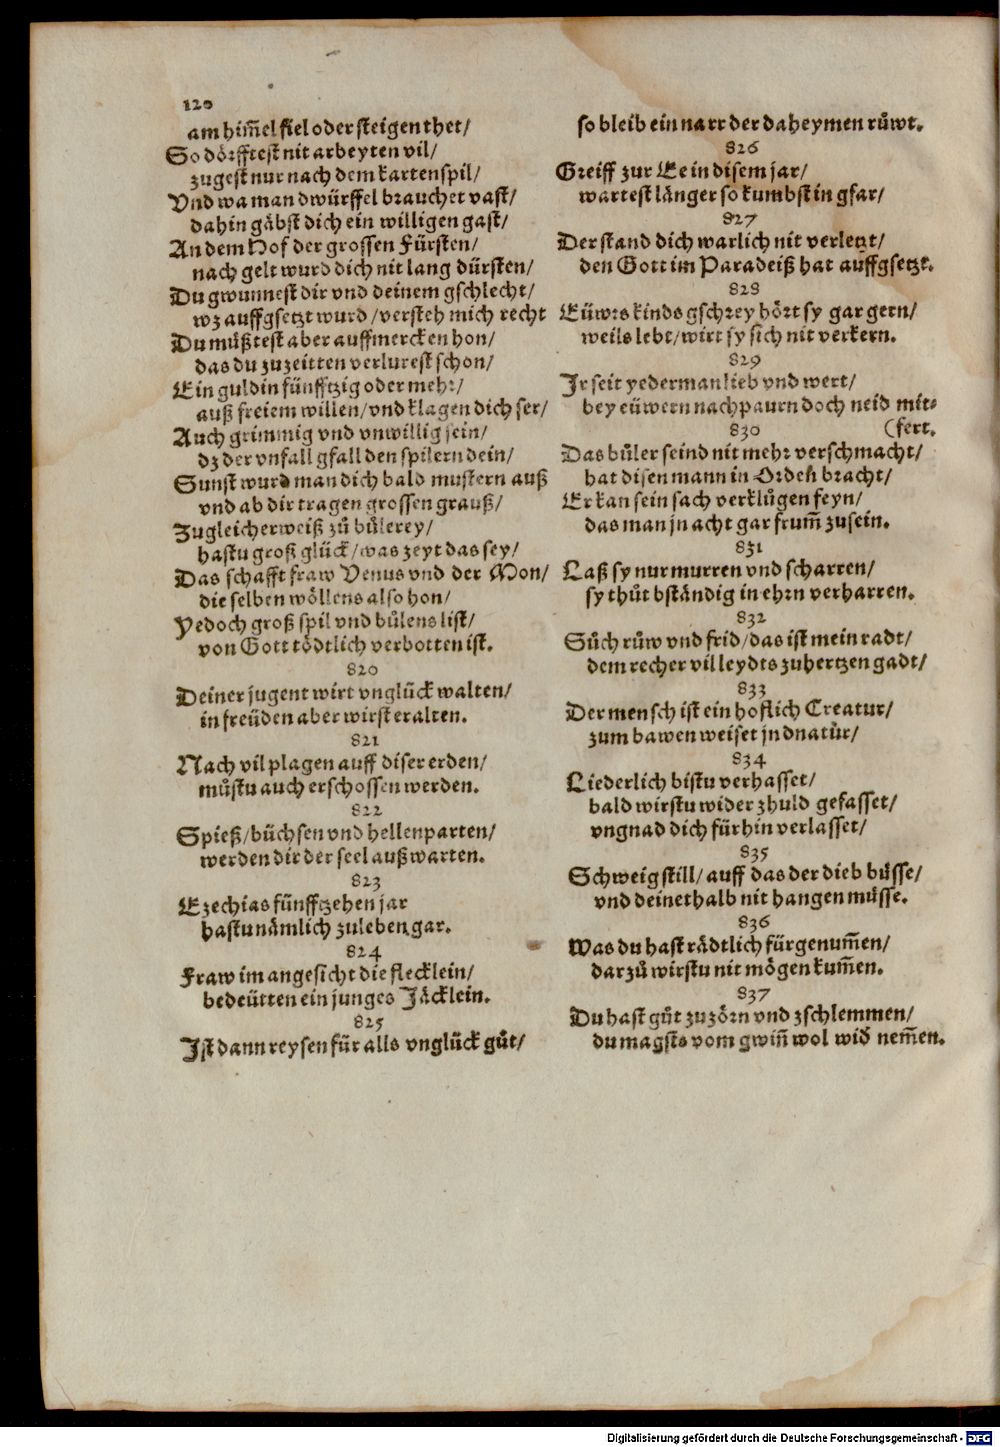 120
am him̃el fiel oder steigen thet/
So dörfftest nit arbeyten vil/
zugest nur nach dem kartenspil/
Vnd wa man dwürffel brauchet vast/
dahin gäbst dich ein willigen gast/
An dem Hof der grossen Fürsten/
nach gelt wurd dich nit lang dürsten/
Du gwunnest dir vnd deinem gschlecht/
wz auffgsetzt wurd/versteh mich recht
Du müßtest aber auffmercken hon/
das du zuzeitten verlurest schon/
Ein guldin fünfftzig oder mehr/
auß freiem willen/vnd klagen dich ser/
Auch grimmig vnd vnwillig sein/
dz der vnfall gfall den spilern dein/
Sunst wurd man dich bald mustern auß
vnd ab dir tragen grossen grauß/
Zugleicherweiß zů bůlerey/
hastu groß glück/was zeyt das sey/
Das schafft fraw Venus vnd der Mon/
die selben wöllens also hon/
Yedoch groß spil vnd bůlens list/
von Gott tödtlich verbotten ist.
820
Deiner jugent wirt vnglück walten/
in freüden aber wirst eralten.
821
Nach vil plagen auff diser erden/
můstu auch erschossen werden.
822
Spieß/büchsen vnd hellenparten/
werden dir der seel außwarten.
823
Ezechias fünfftzehen jar
hastu nämlich zuleben gar.
824
Fraw im angesicht die flecklein/
bedeütten ein junges Jäcklein.
825
Jst dann reysen für alls vnglück gůt/
so bleib ein narr der daheymen růwt.
826
Greiff zur Ee in disem jar/
wartest länger so kumbst in gfar/
827
Der stand dich warlich nit verletzt/
den Gott im Paradeiß hat auffgsetzt.
828
Eüwrs kinds gschrey hört sy gar gern/
weils lebt/wirt sy sich nit verkern.
829
Jr seit yederman lieb vnd wert/
bey eüwern nachpaurn doch neid mit-
830 (fert.
Das bůler seind nit mehr verschmacht/
hat disen mann in Orden bracht/
Er kan sein sach verklůgen feyn/
das man jn acht gar frum̃ zusein.
831
Laß sy nur murren vnd scharren/
sy thůt bständig in ehrn verharren.
832
Sůch růw vnd frid/das ist mein radt/
dem recher vil leydts zuhertzen gadt/
833
Der mensch ist ein hoflich Creatur/
zum bawen weiset jn dnatůr/
834
Liederlich bistu verhasset/
bald wirstu wider zhuld gefasset/
vngnad dich fürhin verlasset/
835
Schweig still/auff das der dieb büsse/
vnd deinethalb nit hangen müsse.
836
Was du hast rädtlich fürgenum̃en/
darzů wirstu nit mögen kum̃en.
837
Du hast gůt zuzörn vnd zschlemmen/
du magsts vom gwiñ wol wid̕ nem̃en.
Digitalisierung gefördert durch die Deutsche Forschungsgemeinschaft - DFG